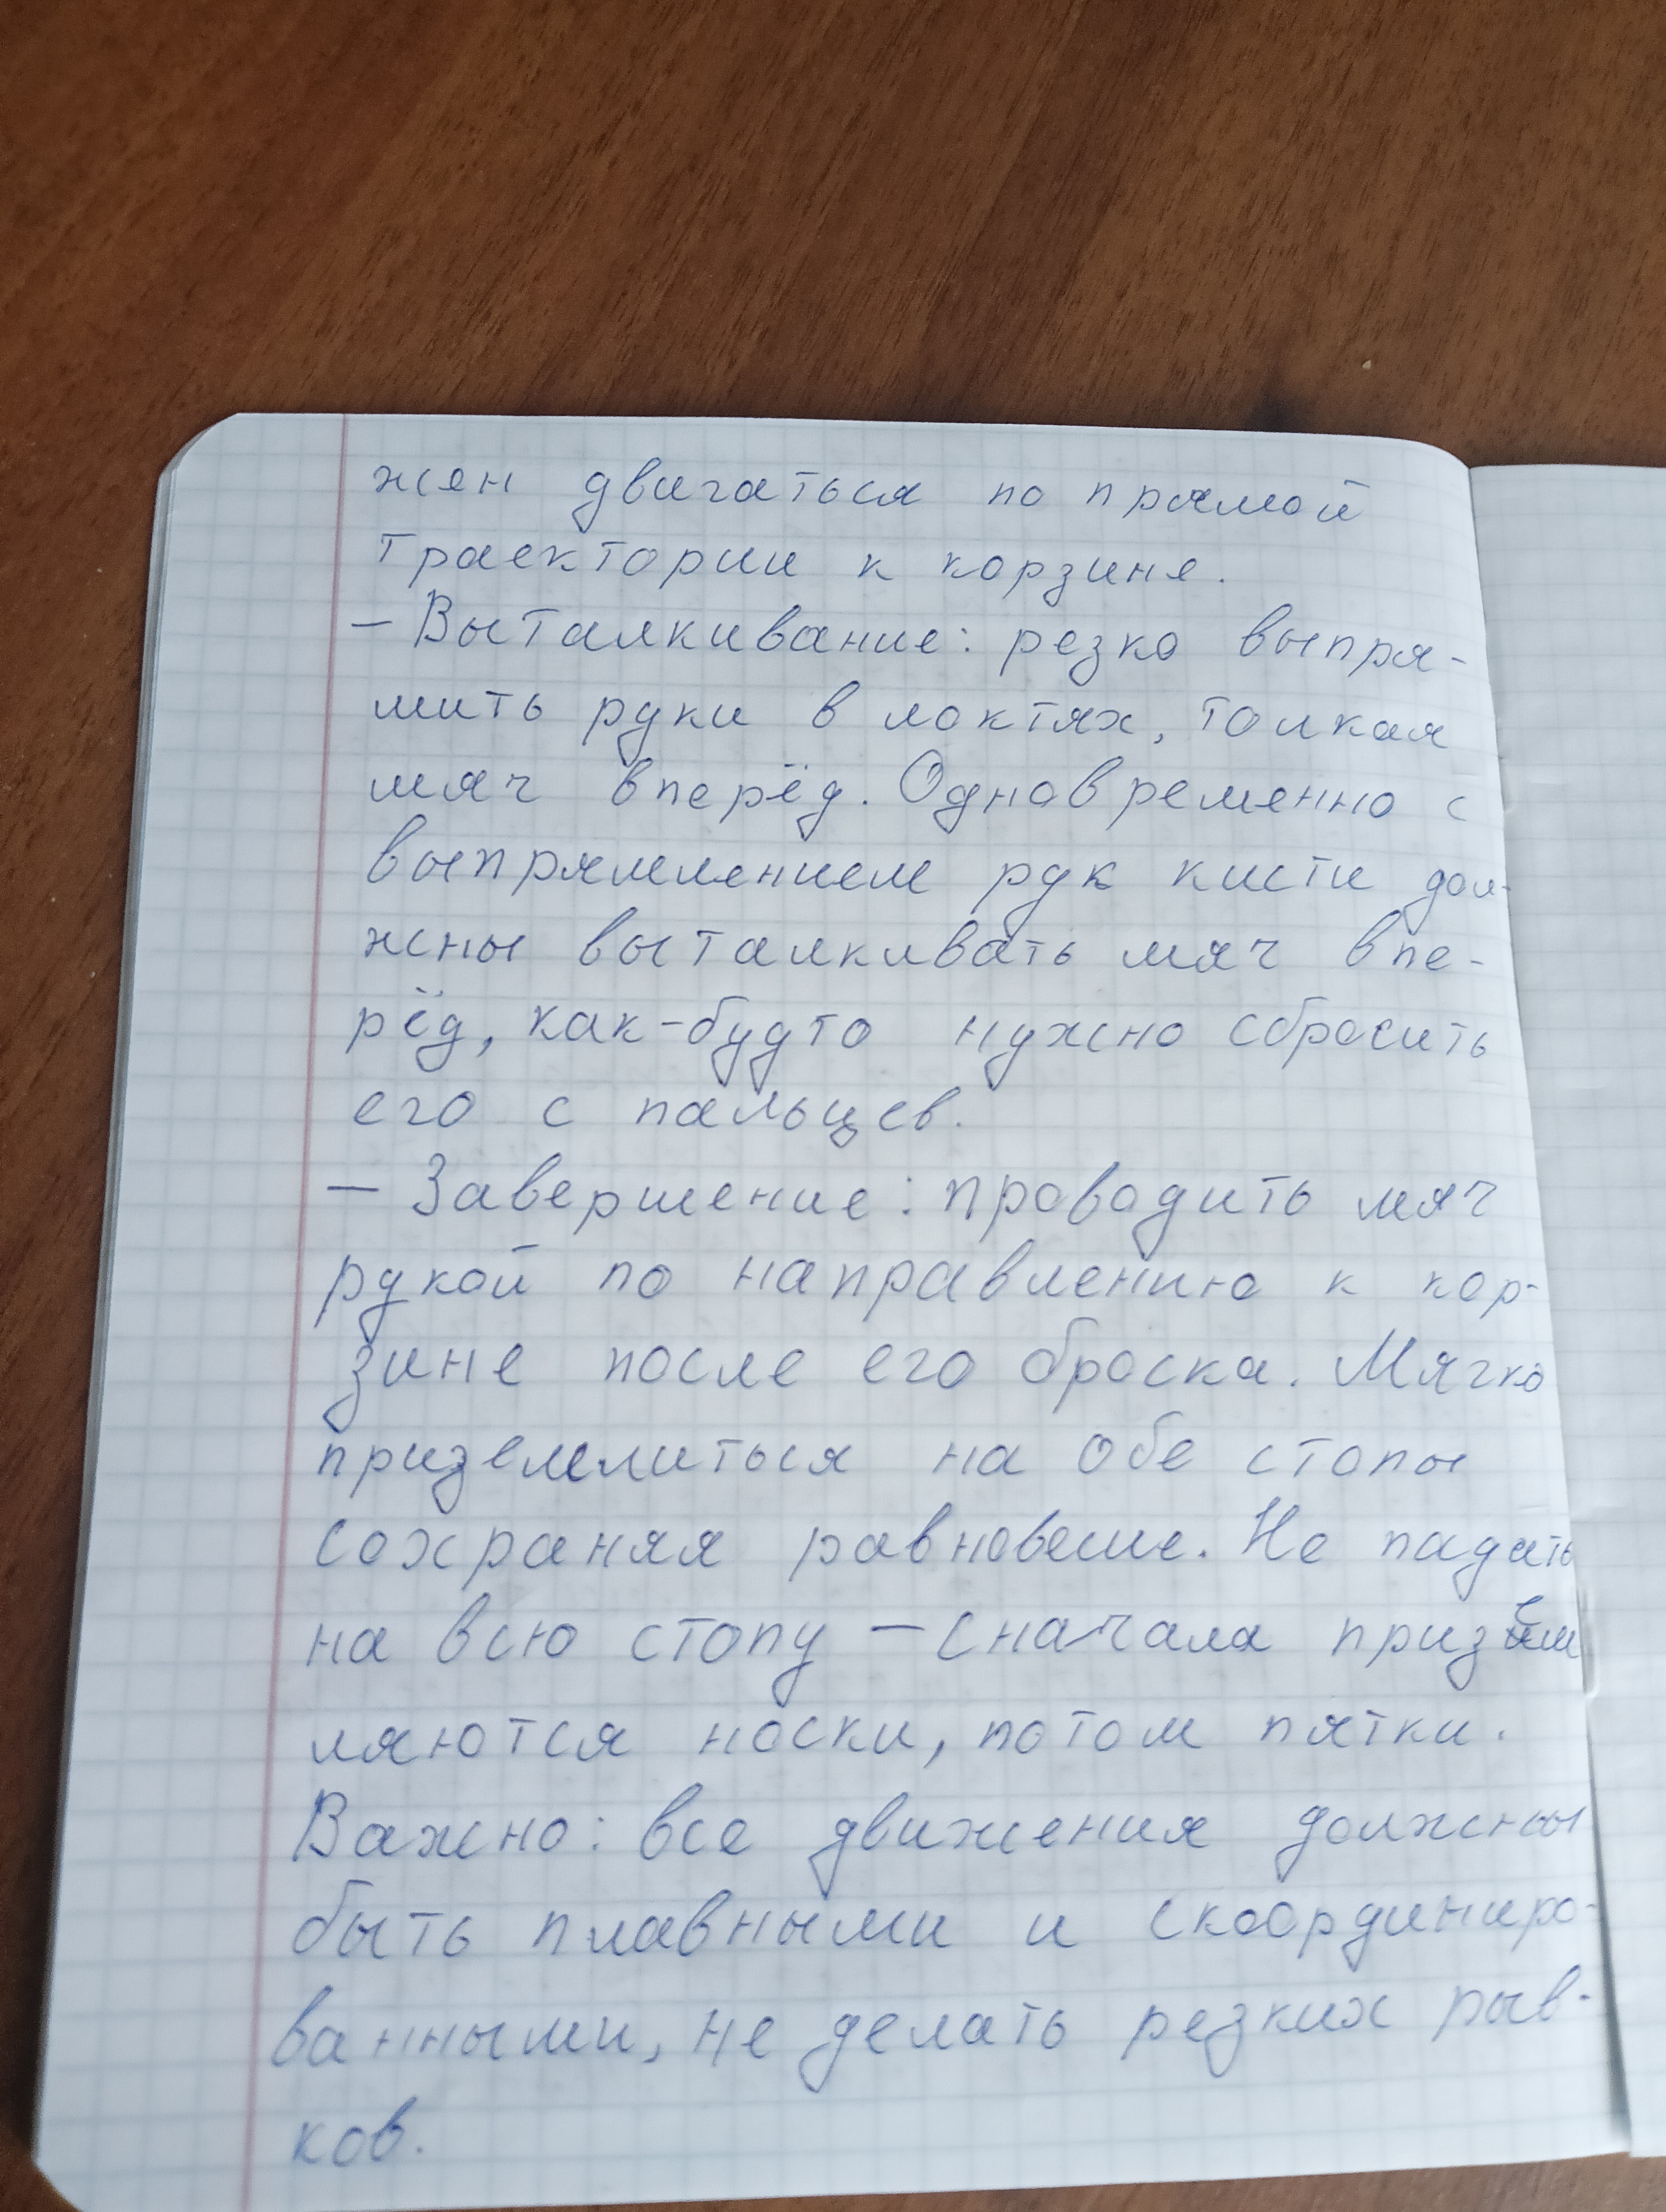 жен двигаться по прямой
траектории к корзине.
- Выталкивание: резко выпря-
мить руки в локтях, толкая
мяч вперёд. Одновременно с
выпрямлением рук кисти дол-
жны выталкивать мяч впе-
рёд, как-будто нужно сбросить
его с пальцев.
- Завершение: проводить мяч
рукой по направлению к кор-
зине после его броска. Мягко
приземлиться на обе стопы
сохраняя равновесие. Не падать
на всю стопу - сначала призем
ляются носки, потом пятки.
Важно: все движения должны
быть плавными и скоординиро-
ванными, не делать резких рыв-
ков.